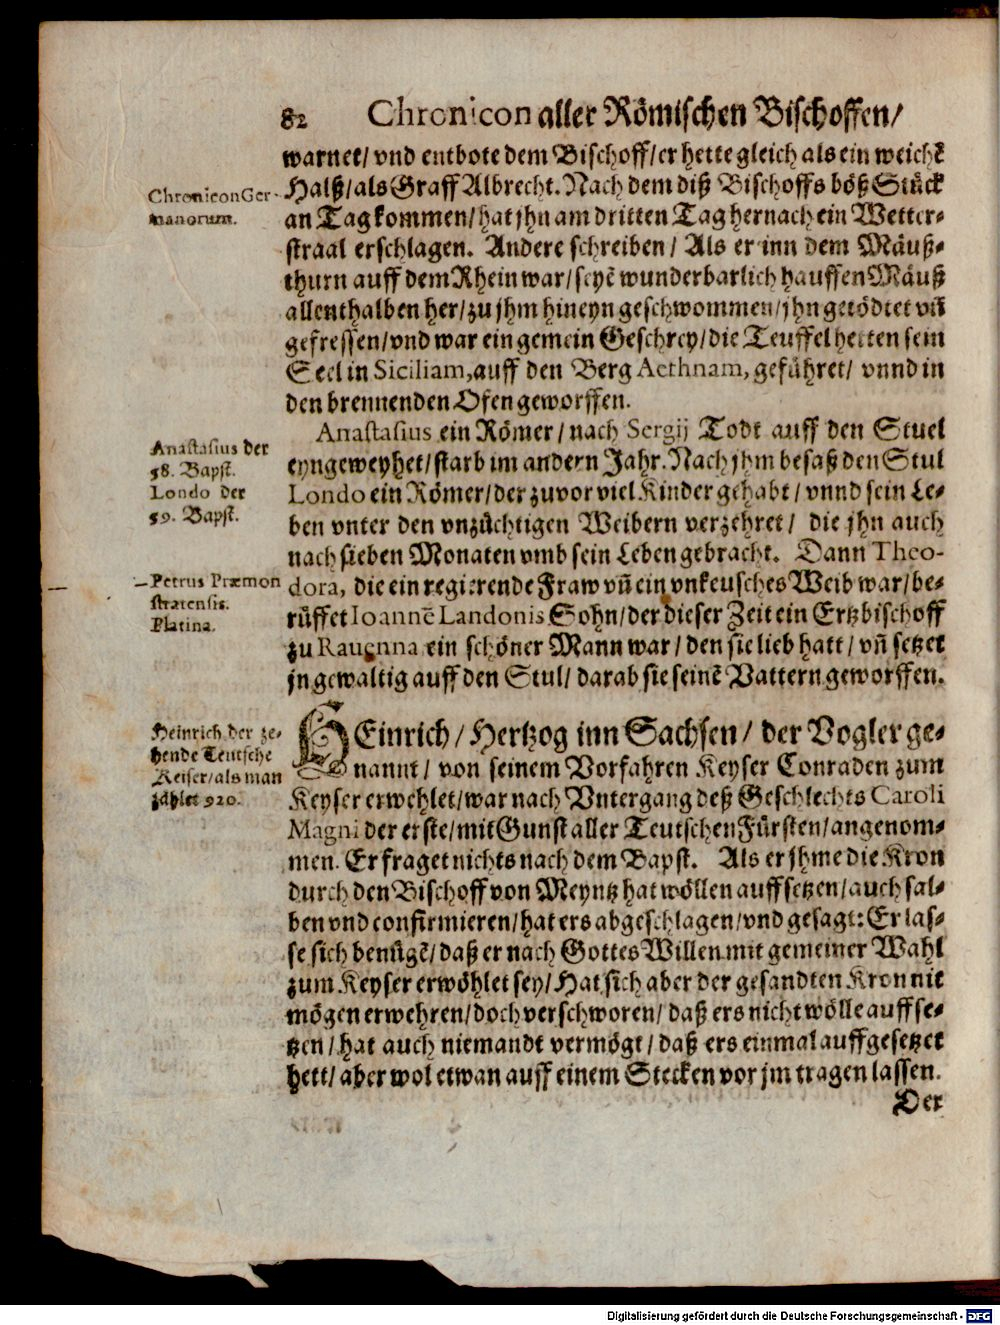 82 Chronicon aller Römischen Bischoffen/
warnet/ vnd entbote dem Bischoff/ er hette gleich als ein weichẽ
Halß/ als Graff Albrecht. Nach dem diß Bischoffs böß Stück
an Tag kommen/ hat jhn am dritten Tag hernach ein Wetter-
straal erschlagen. Andere schreiben/ Als er inn dem Mäuß-
thurn auff dem Rhein war/ seyẽ wunderbarlich hauffen Mäuß
allenthalben her/ zu jhm hineyn geschwommen/ jhn getödtet vñ
gefressen/ vnd war ein gemein Geschrey/ die Teuffel hetten sein
Seel in Siciliam, auff den Berg Aethnam, geführet/ vnnd in
den brennenden Ofen geworffen.
Chronicon Ger-
manorum.
Anastasius ein Römer/ nach Sergij Todt auff den Stuel
eyngeweyhet/ starb im andern Jahr. Nach jhm besaß den Stul
Londo ein Römer/ der zuvor viel Kinder gehabt/ vnnd sein Le-
ben vnter den vnzüchtigen Weibern verzehret/ die jhn auch
nach sieben Monaten vmb sein Leben gebracht. Dann Theo-
dora, die ein regierende Fraw vñ ein vnkeusches Weib war/ be-
rüffet Ioannẽ Landonis Sohn/ der dieser Zeit ein Ertzbischoff
zu Rauenna ein schöner Mann war/ den sie lieb hatt/ vñ setzet
jn gewaltig auff den Stul/ darab sie seinẽ Vattern geworffen.
Anastasius der
58. Bapst.
Londo der
59. Bapst.
Petrus Præmon
stratensis.
Platina.
HEinrich/ Hertzog inn Sachsen/ der Vogler ge-
nannt/ von seinem Vorfahren Keyser Conraden zum
Keyser erwehlet/ war nach Vntergang deß Geschlechts Caroli
Magni der erste/ mit Gunst aller Teutschen Fürsten/ angenom-
men. Er fraget nichts nach dem Bapst. Als er jhme die Kron
durch den Bischoff von Meyntz hat wöllen auffsetzen/ auch sal-
ben vnd confirmieren/ hat ers abgeschlagen/ vnd gesagt: Er las-
se sich benügẽ/ daß er nach Gottes Willen mit gemeiner Wahl
zum Keyser erwöhlet sey/ Hat sich aber der gesandten Kron nit
mögen erwehren/ doch verschworen/ daß ers nicht wölle auffse-
tzen/ hat auch niemandt vermögt/ daß ers einmal auffgesetzet
hett/ aber wol etwan auff einem Stecken vor jm tragen lassen.
Heinrich der ze-
hende Teutsche
Keiser/ als man
zählet 920.
Der
Digitalisierung gefördert durch die Deutsche Forschungsgemeinschaft - DFG